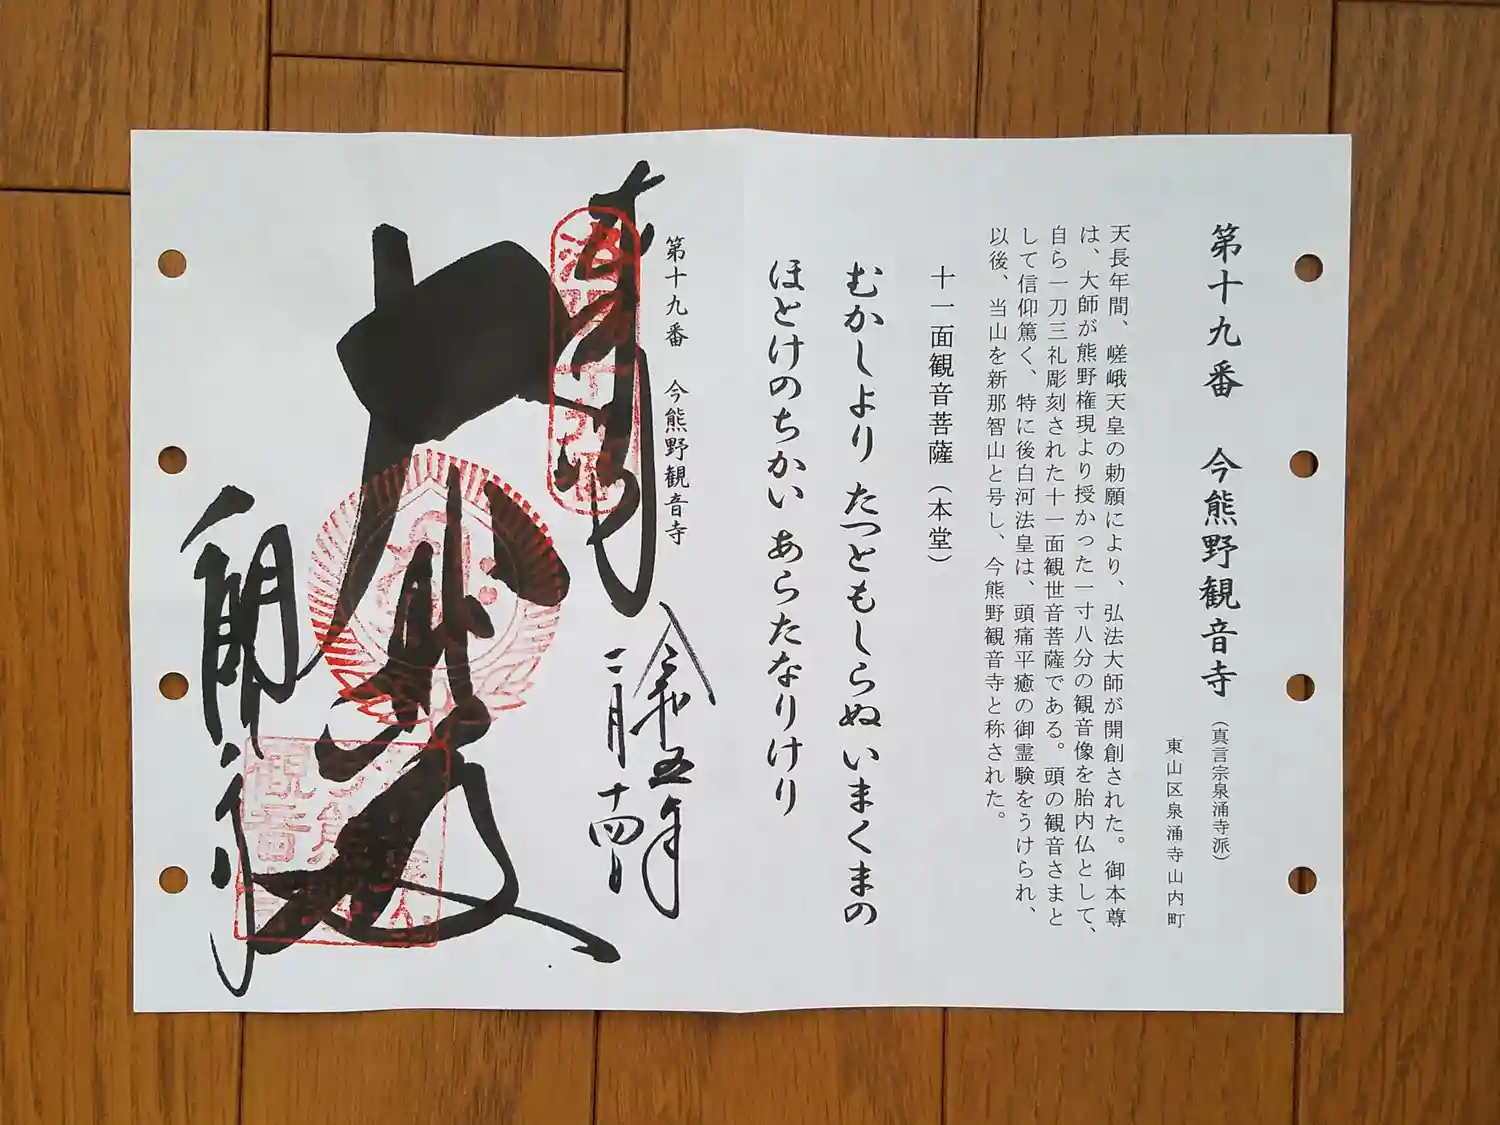 第十九番 今熊野観音寺（真言宗泉涌寺派）
東山区泉涌寺山内町
天長年間、嵯峨天皇の勅願により、弘法大師が開創された。御本尊
は、大師が熊野権現より授かった一寸八分の観音像を胎内仏として、
自ら一刀三礼彫刻された十一面観世音菩薩である。頭の観音さまと
して信仰篤く、特に後白河法皇は、頭痛平癒の御霊験をうけられ、
以後、当山を新那智山と号し、今熊野観音寺と称された。
十一面観音菩薩（本堂）
むかしより たつともしらぬ いまくまの
ほとけのちかい あらたなりけり
第十九番 今熊野観音寺
奉拝
令和五年
二月十四日
大悲殿
観音寺
洛陽十九番